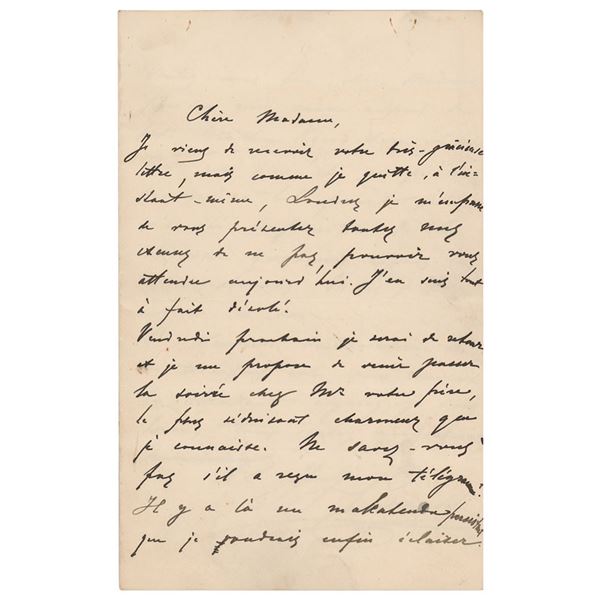 Chère Madame,
Je viens de recevoir votre très-gracieuse
lettre, mais comme je quitte, à l'ins-
tant-même, Londres je m'empresse
de vous présenter toutes mes
excuses de ne pas pouvoir vous
attendre aujourd'hui. J'en suis tout
à fait désolé.
Vendredi prochain je serai de retour
et je me propose de venir passer
la soirée chez Mr votre frère,
le plus séduisant charmeur que
je connaisse. Ne savez-vous
pas s'il a reçu mon télégramme?
Il y a là un
que je voudrais enfin éclaircir.